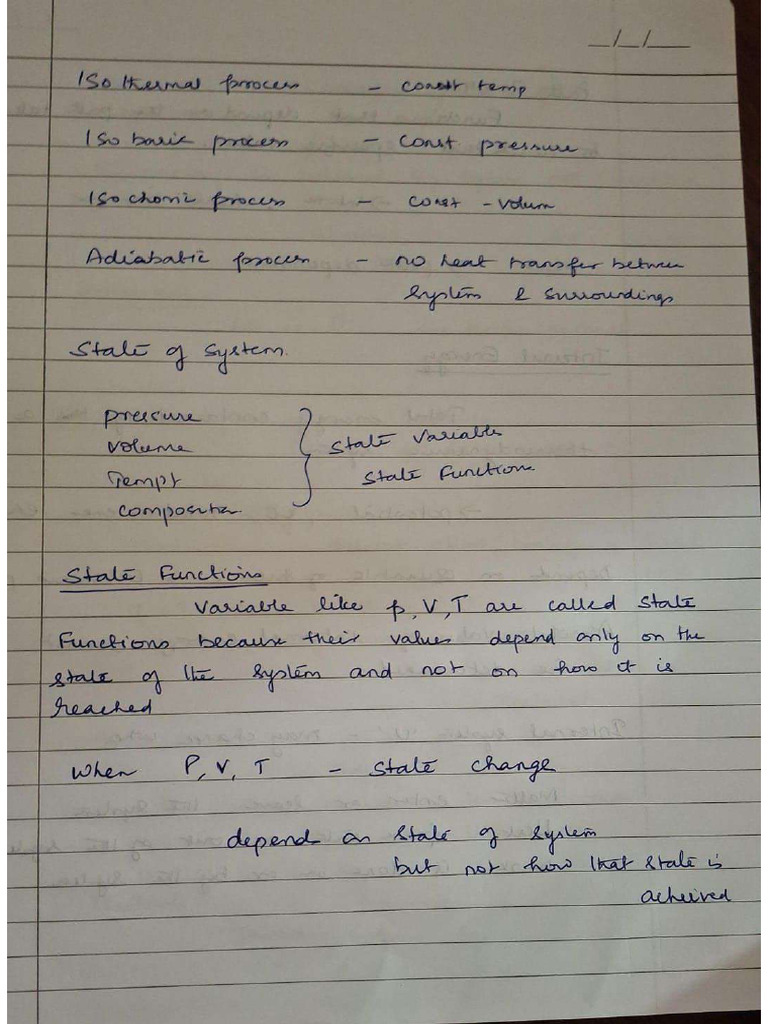 _/_/__
Isothermal process - const temp
Isobaric process - const pressure
Isochoric process - const - volum
Adiabatic process - no heat transfer between
system & surroundings
State of system.
pressure
volume
Tempt
composition
State Variable
State Functions
State Functions
Variable like p, V, T are called State
Functions because their values depend only on the
state of the system and not on how it is
reached
When P, V, T - State change
depend on State of System
but not how that state is
acheived